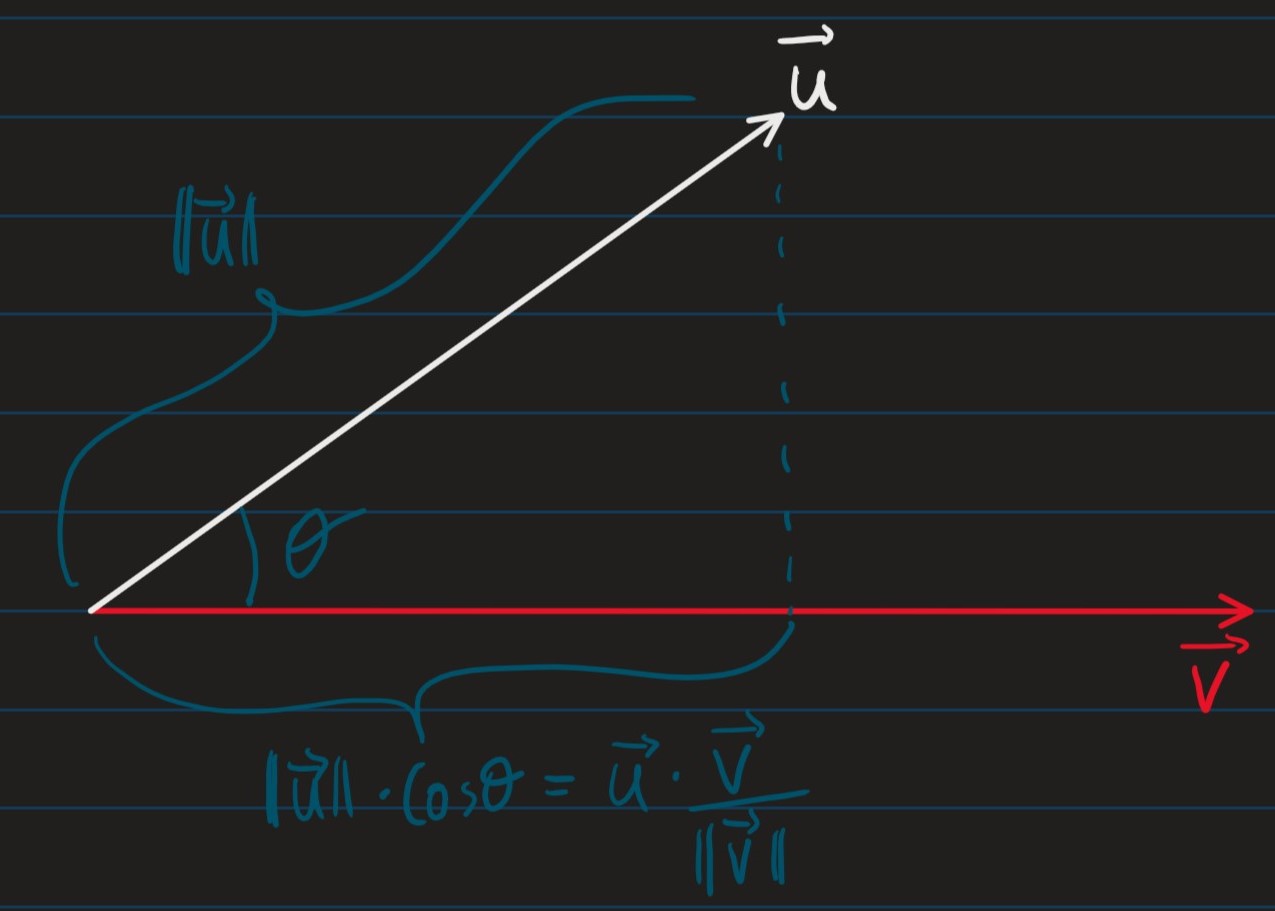 $\vec{u}$
$\|\vec{u}\|$
$\theta$
$\vec{v}$
$\|\vec{u}\| \cdot \cos\theta = \vec{u} \cdot \frac{\vec{v}}{\|\vec{v}\|}$